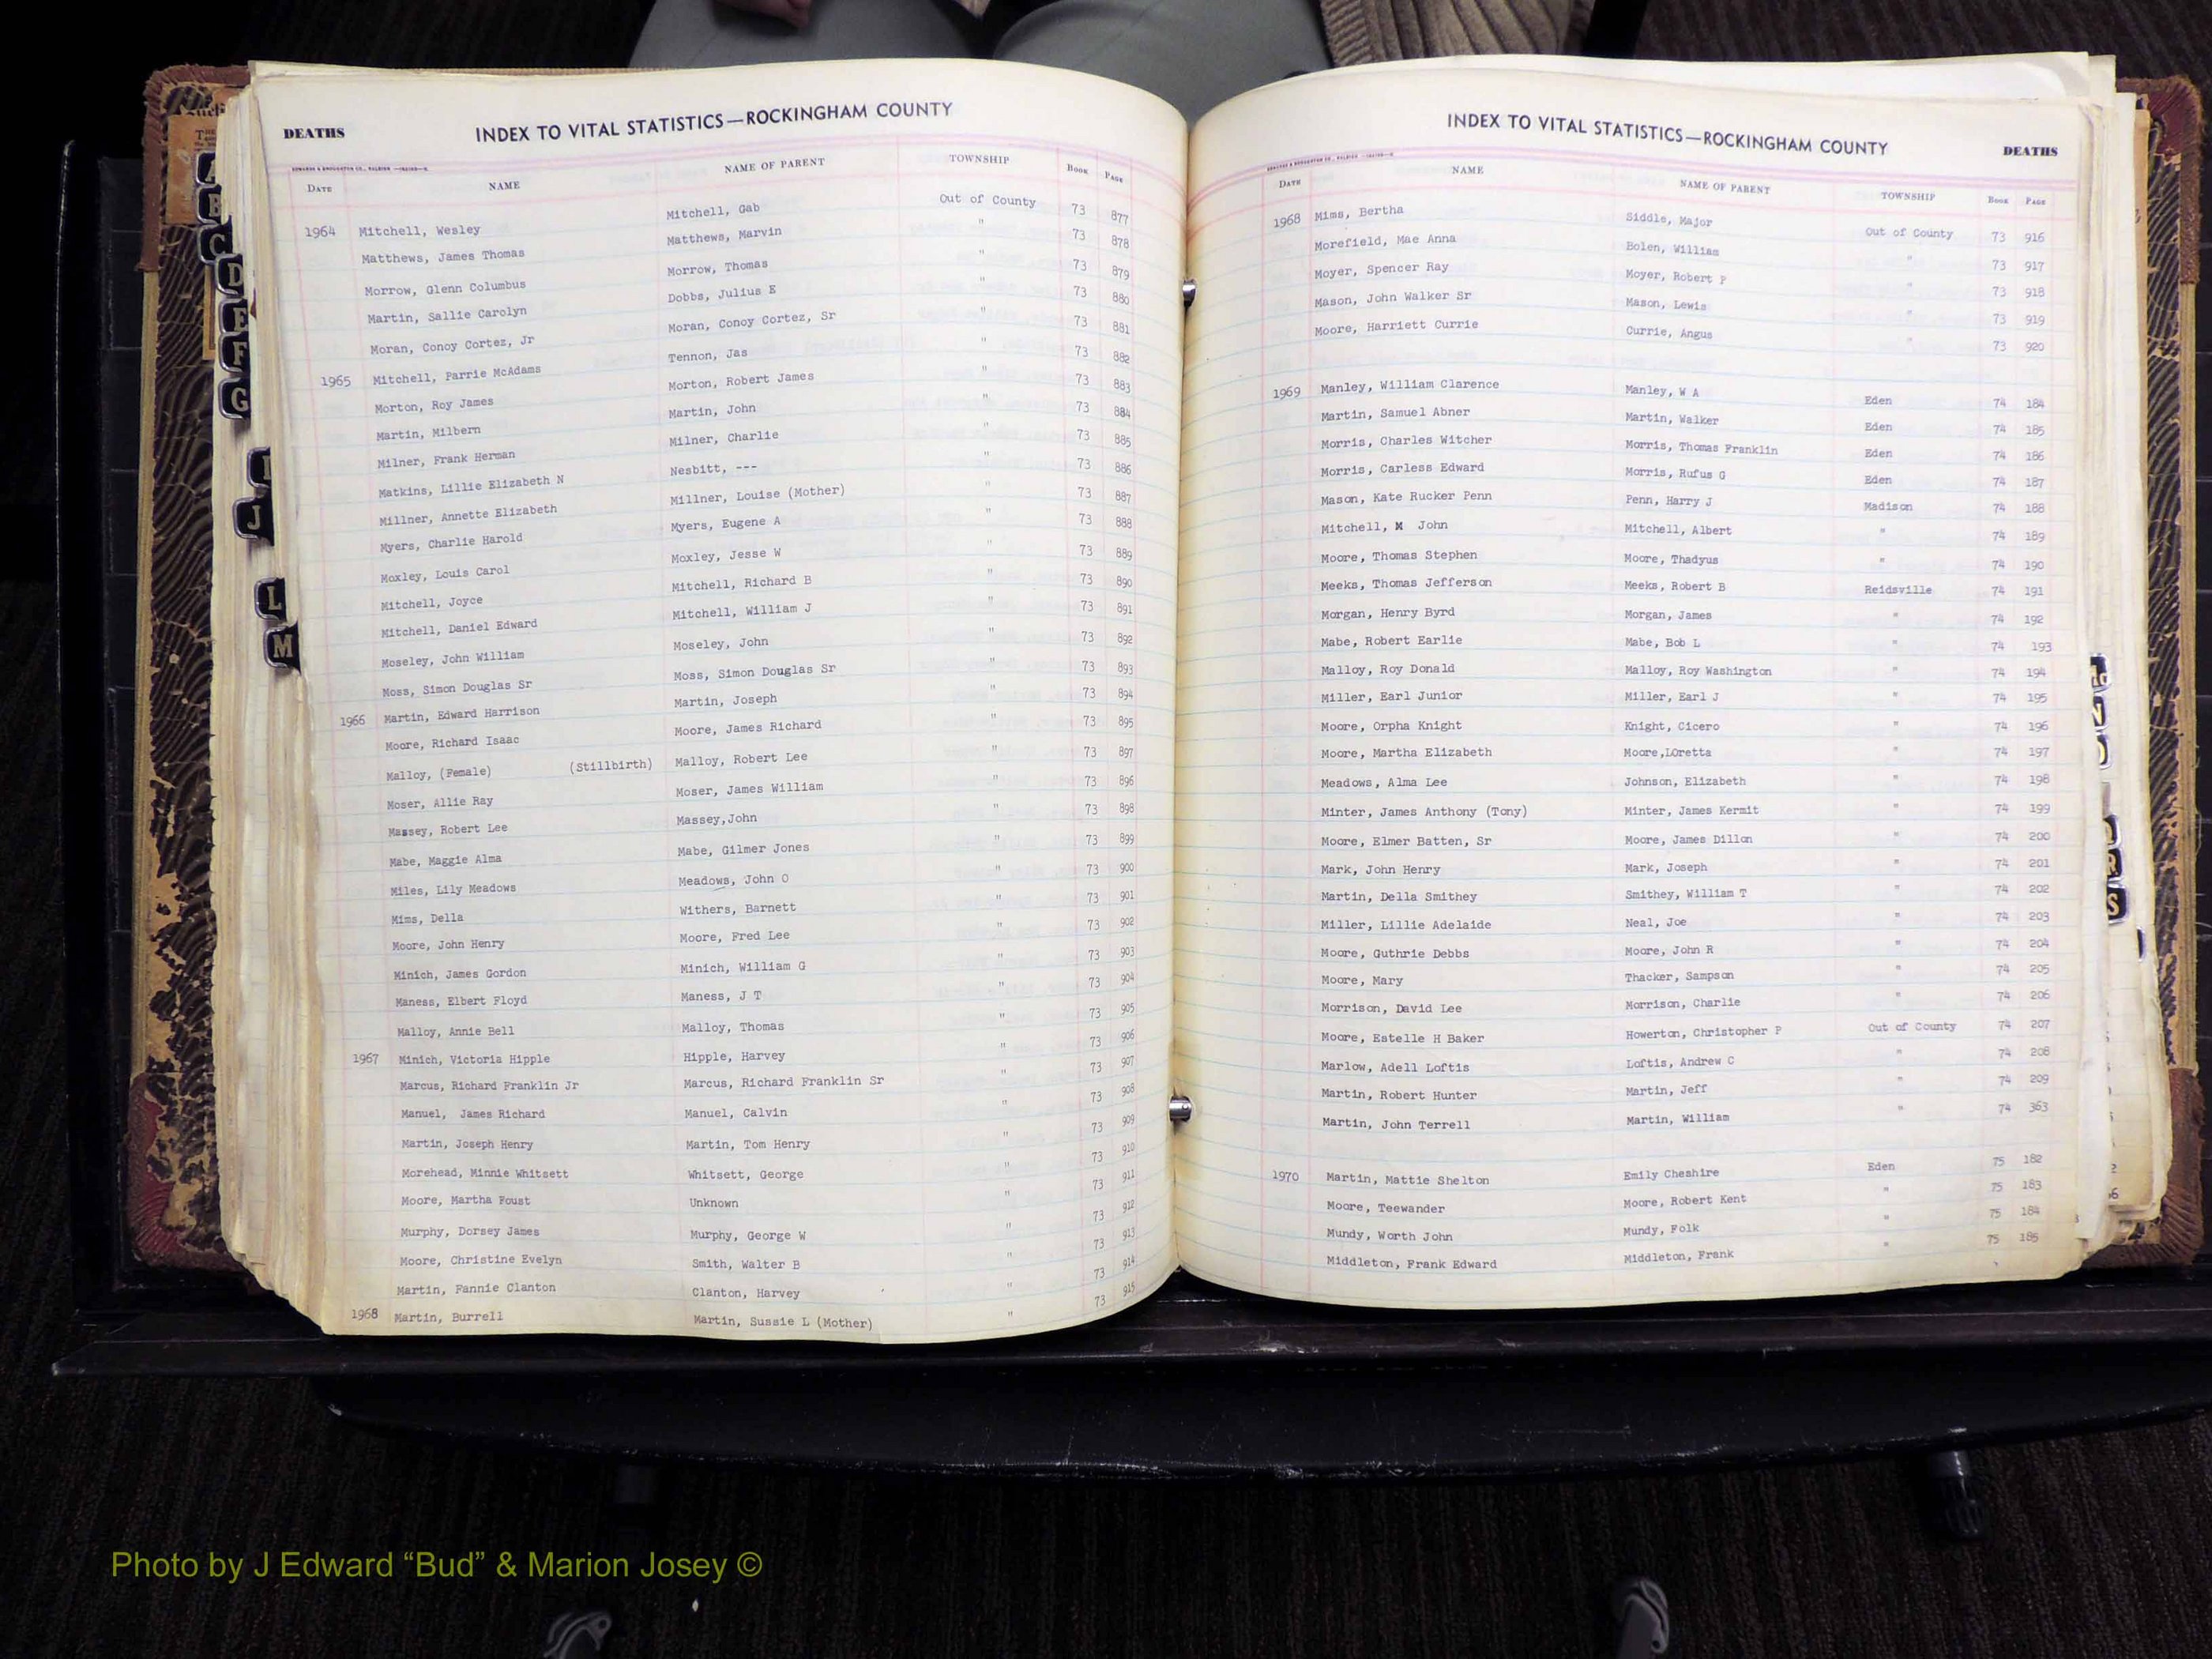 DEATHS INDEX TO VITAL STATISTICS—ROCKINGHAM COUNTY
DATE NAME NAME OF PARENT TOWNSHIP BOOK PAGE
1964 Mitchell, Wesley Mitchell, Gab Out of County 73 877
Matthews, James Thomas Matthews, Marvin " 73 878
Morrow, Glenn Columbus Morrow, Thomas " 73 879
Martin, Sallie Carolyn Dobbs, Julius E " 73 880
Moran, Conoy Cortez, Jr Moran, Conoy Cortez, Sr " 73 881
1965 Mitchell, Parrie McAdams Tennon, Jas " 73 882
Morton, Roy James Morton, Robert James " 73 883
Martin, Milbern Martin, John " 73 884
Milner, Frank Herman Milner, Charlie " 73 885
Matkins, Lillie Elizabeth N Nesbitt, --- " 73 886
Millner, Annette Elizabeth Millner, Louise (Mother) " 73 887
Myers, Charlie Harold Myers, Eugene A " 73 888
Moxley, Louis Carol Moxley, Jesse W " 73 889
Mitchell, Joyce Mitchell, Richard B " 73 890
Mitchell, Daniel Edward Mitchell, William J " 73 891
Moseley, John William Moseley, John " 73 892
Moss, Simon Douglas Sr Moss, Simon Douglas Sr " 73 893
1966 Martin, Edward Harrison Martin, Joseph " 73 894
Moore, Richard Isaac Moore, James Richard " 73 895
Malloy, (Female) (Stillbirth) Malloy, Robert Lee " 73 897
Moser, Allie Ray Moser, James William " 73 896
Massey, Robert Lee Massey,John " 73 898
Mabe, Maggie Alma Mabe, Gilmer Jones " 73 899
Miles, Lily Meadows Meadows, John O " 73 900
Mims, Della Withers, Barnett " 73 901
Moore, John Henry Moore, Fred Lee " 73 902
Minich, James Gordon Minich, William G " 73 903
Maness, Elbert Floyd Maness, J T " 73 904
Malloy, Annie Bell Malloy, Thomas " 73 905
1967 Minich, Victoria Hipple Hipple, Harvey " 73 906
Marcus, Richard Franklin Jr Marcus, Richard Franklin Sr " 73 907
Manuel, James Richard Manuel, Calvin " 73 908
Martin, Joseph Henry Martin, Tom Henry " 73 909
Morehead, Minnie Whitsett Whitsett, George " 73 910
Moore, Martha Foust Unknown " 73 911
Murphy, Dorsey James Murphy, George W " 73 912
Moore, Christine Evelyn Smith, Walter B " 73 913
Martin, Fannie Clanton Clanton, Harvey " 73 914
1968 Martin, Burrell Martin, Sussie L (Mother) " 73 915
INDEX TO VITAL STATISTICS—ROCKINGHAM COUNTY DEATHS
DATE NAME NAME OF PARENT TOWNSHIP BOOK PAGE
1968 Mims, Bertha Siddle, Major Out of County 73 916
Morefield, Mae Anna Bolen, William " 73 917
Moyer, Spencer Ray Moyer, Robert P " 73 918
Mason, John Walker Sr Mason, Lewis " 73 919
Moore, Harriett Currie Currie, Angus " 73 920
1969 Manley, William Clarence Manley, W A Eden 74 184
Martin, Samuel Abner Martin, Walker Eden 74 185
Morris, Charles Witcher Morris, Thomas Franklin Eden 74 186
Morris, Carless Edward Morris, Rufus G Eden 74 187
Mason, Kate Rucker Penn Penn, Harry J Madison 74 188
Mitchell, M John Mitchell, Albert " 74 189
Moore, Thomas Stephen Moore, Thadyus " 74 190
Meeks, Thomas Jefferson Meeks, Robert B Reidsville 74 191
Morgan, Henry Byrd Morgan, James " 74 192
Mabe, Robert Earlie Mabe, Bob L " 74 193
Malloy, Roy Donald Malloy, Roy Washington " 74 194
Miller, Earl Junior Miller, Earl J " 74 195
Moore, Orpha Knight Knight, Cicero " 74 196
Moore, Martha Elizabeth Moore,LOretta " 74 197
Meadows, Alma Lee Johnson, Elizabeth " 74 198
Minter, James Anthony (Tony) Minter, James Kermit " 74 199
Moore, Elmer Batten, Sr Moore, James Dillon " 74 200
Mark, John Henry Mark, Joseph " 74 201
Martin, Della Smithey Smithey, William T " 74 202
Miller, Lillie Adelaide Neal, Joe " 74 203
Moore, Guthrie Debbs Moore, John R " 74 204
Moore, Mary Thacker, Sampson " 74 205
Morrison, David Lee Morrison, Charlie " 74 206
Moore, Estelle H Baker Howerton, Christopher P Out of County 74 207
Marlow, Adell Loftis Loftis, Andrew C " 74 208
Martin, Robert Hunter Martin, Jeff " 74 209
Martin, John Terrell Martin, William " 74 363
1970 Martin, Mattie Shelton Emily Cheshire Eden 75 182
Moore, Teewander Moore, Robert Kent " 75 183
Mundy, Worth John Mundy, Folk " 75 184
Middleton, Frank Edward Middleton, Frank " 75 185
A
B
C
D
E
F
G
I
J
L
M
N
O
Q
R
S
Photo by J Edward “Bud” & Marion Josey ©